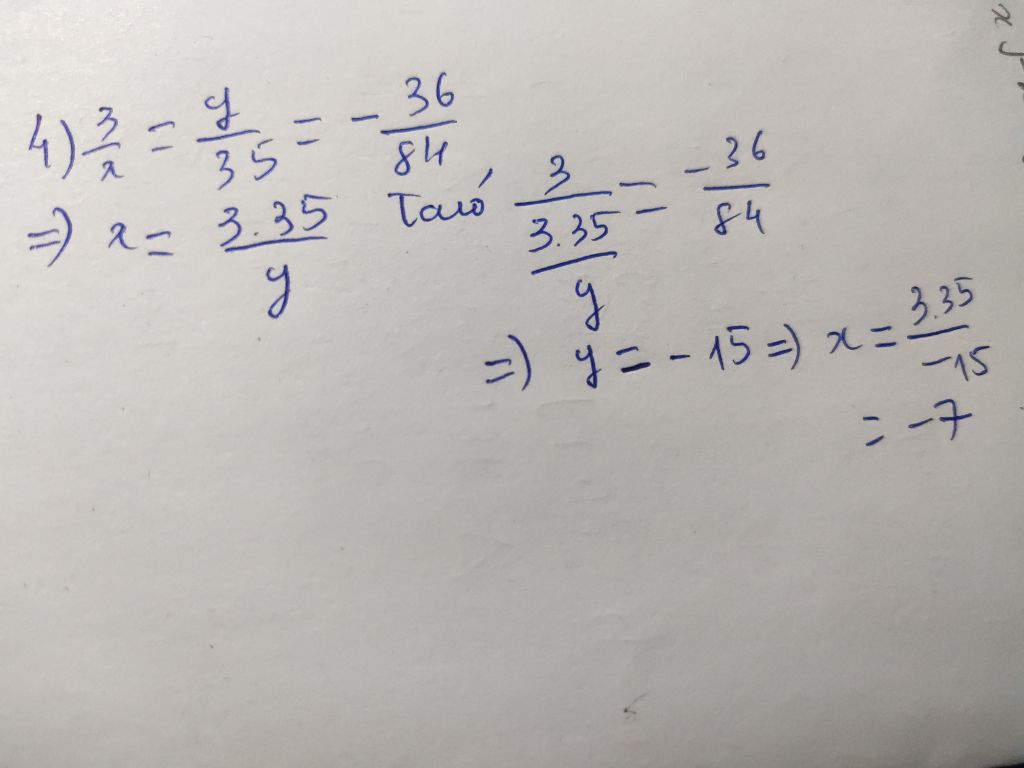 4) 3/x = y/35 = - 36/84
=> x = 3.35/y Ta có 3/(3.35/y) = - 36/84
=> y = - 15 => x = 3.35/-15
= -7
x